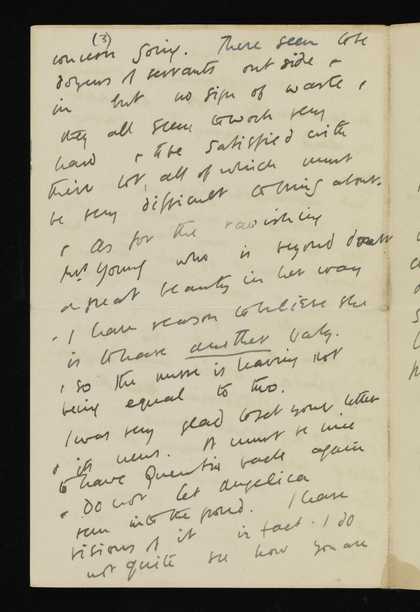 (3)
concern going. There seem to be
dozens of servants outside &
in but no sign of waste &
they all seem to work very
hard & to be satisfied with
their lot, all of which must
be very difficult to bring about.
& as for the ravishing
Mrs Young who is beyond doubt
a great beauty in her way
& I have reason to believe she
is to have another baby.
& so the nurse is leaving not
being equal to two.
I was very glad to get your letter
& its news. It must be nice
to have Quentin back again
& Do not let Angelica
run into the pond. I have
visions of it in fact. I do
not quite see how you are